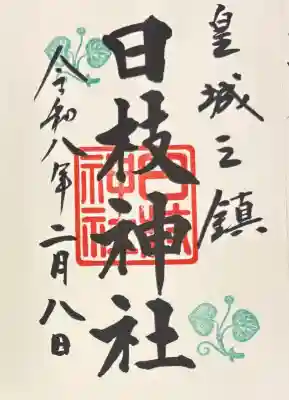 皇城之鎮
日枝神社
令和八年二月八日
日枝
神社